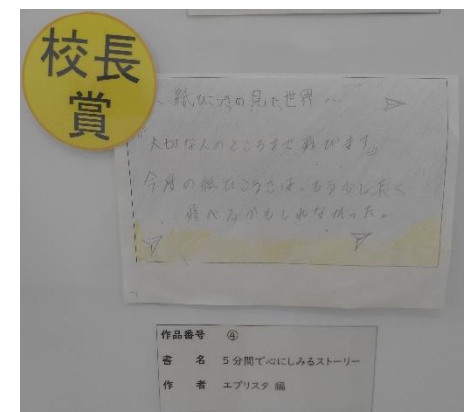 校長
賞
紙ひこうきの見た世界
大切な人のところまで飛びます。
今度の紙ひこうきは、もう少し長く
飛べるかもしれなかった。
作品番号 ④
書 名 5分間で心にしみるストーリー
作 者 エブリスタ 編